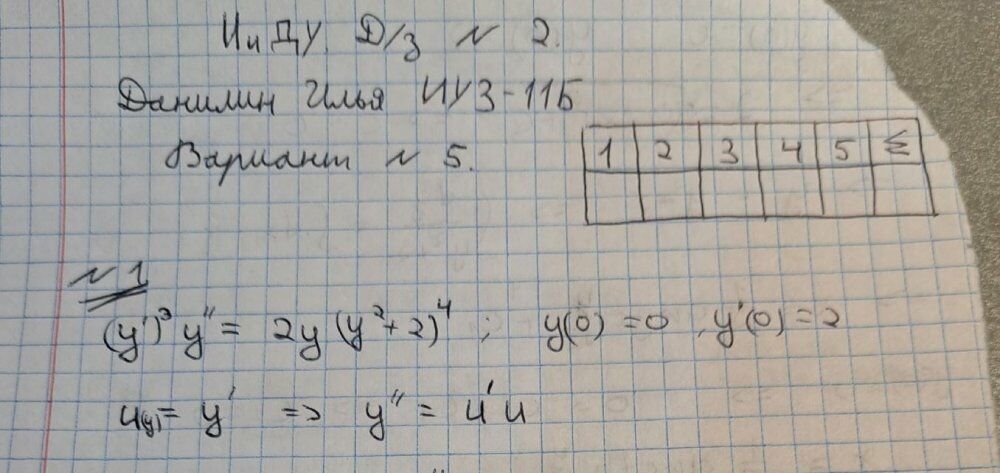 ИиДУ. Д/з № 2.
Данилин Илья ИУ3-11Б
Вариант № 5.
1 2 3 4 5 Σ
№ 1
(y')³ y'' = 2y (y² + 2)⁴ ; y(0) = 0 , y'(0) = 2
u(y) = y' => y'' = u' u